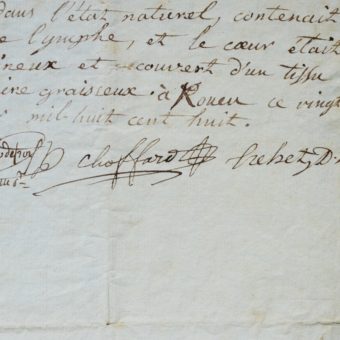 dans l'état naturel, contenait
lymphe, et le cœur était
et couvert d'un tissu
graisseux. à Rouen ce vingt
mil-huit cent huit.
Choffard